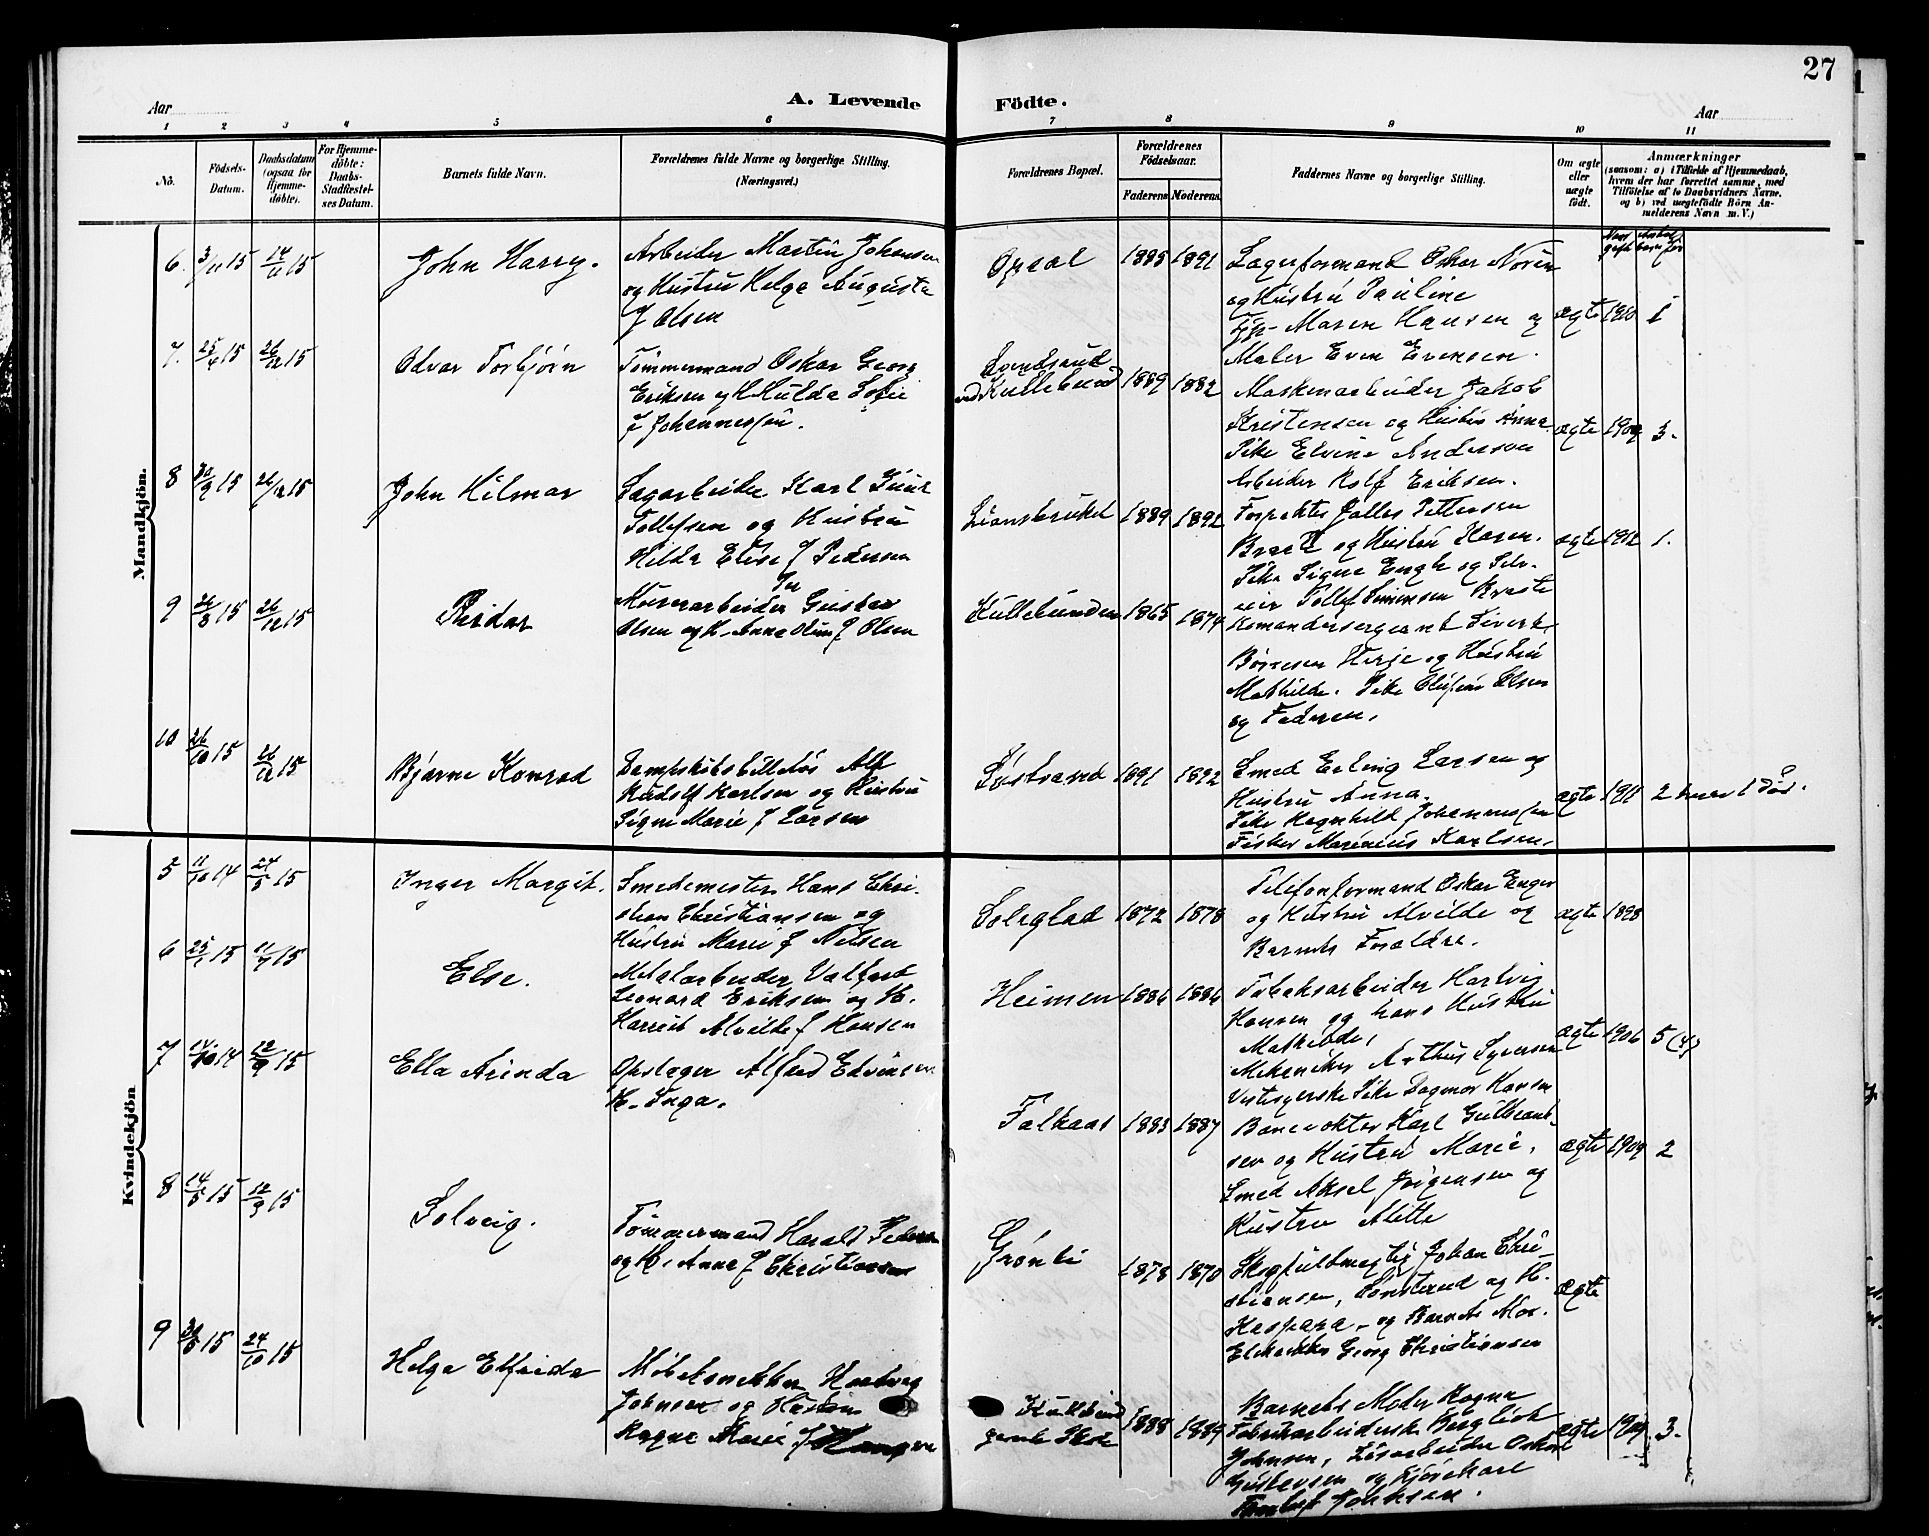 27
A. Levende Födte.
Aar
Aar
1 2 3 4 5 6 7 8 9 10 11
No.
Födsels-
Datum.
Daabsdatum
(ogsaa for
Hjemme-
döbte).
For Hjemme-
döbte:
Daabs-
Stadfæstel-
ses Datum.
Barnets fulde Navn.
Forældrenes fulde Navne og borgerlige Stilling.
(Næringsvei.)
Forældrenes Bopæl.
Forældrenes
Födselsaar.
Faderens
Moderens
Faddernes Navne og borgerlige Stilling.
Om ægte
eller
uægte
født.
Anmærkninger
(saasom: a) i Tilfælde af Hjemmedaab,
hvem der har forrettet samme, med
Tilføielse af to Daabsvidners Navne.
og b) ved uægtefødte Börn An-
melderens Navn m. V.)
Mandkjön.
6. 3/11 15 14/11 15
John Harry.
Arbeider Martin Johansen
og Hustru Helga Augusta
f Olsen
Opsal
1885 1891
Lagerformand Oskar Noren
og Hustru Pauline
Maren Hansen og
Maler Even Evensen.
ægte 1910 1
7. 25/4 15 26/12 15
Odvar Torbjørn
Tømmermand Oskar Georg
Eriksen og H Hulda Sofie
f Johannessen.
ved Kullebund
1889 1882
Maskinarbeider Jakob
Kristensen og Hustru Anna.
Pike Elvine Anderson
Arbeider Rolf Eriksen.
ægte 1909 3.
8 15 26/12 15
John Hilmar
Sagarbeider Karl
Tollefsen og Hustru
Hilda Elise f Pedersen
Liansbruket
1889 1892
Pettersen
og Hustru Karen.
Pike Signe Engh og
Tollef Simensen
ægte 1912 1.
9 26/8 15 26/12 15
Reidar
Murerarbeider Gustav
Olsen og H. Anna f Olsen
Kullebunden
1865 1874
Komandersergeant Sivert
Børresen Herje og Hustru
Mathilde. Pike Olsen
og Faderen.
10 26/10 15 26/12 15
Bjarne Konrad
Dampskibsbilletør Alf
Rudolf Karlsen og Hustru
Signe Marie f Larsen
1891 1892
Smed Erling Larsen og
Hustru Anna.
Pike Ragnhild Johannessen
Fisker Marinius Karlsen.
ægte 1911 2 1 død.
Kvindekjön
5 11/10 14 24/5 15
Inger Margit.
Smedemester Hans Chri-
stian Christiansen og
Hustru Marie f Nilsen
Solglad
1872 1878
Telefonformand Oskar Enger
og Hustru Alvilde og
Barnets Forældre.
ægte 1898
6 25/1 15 11/7 15
Else.
Metalarbeider Valfred
Leonard Eriksen og H.
Harriet Alvilde f Hansen
Heimen
1884 1886
Tobaksarbeider Hartvig
Hansen og hans Hustru
Mathilde,
Mekaniker Arthur Syversen
Pike Dagmar Hansen
ægte 1906 5 (4)
7 14/10 14 12/9 15
Ella Arinda
Opslager Alfred Edvinsen
H. Inga.
Falkaas
1883 1887
Banevokter Karl Gulbrand-
sen og Hustru Marie,
Smed Aksel Jørgensen og
Hustru Alette
ægte 1909 2
8 14/5 15 12/9 15
Solveig.
Tømmermand Harald Pedersen
og H. Anna f Christiansen
Grønli
1878 1870
Skogfuldmegtig Johan Chri-
stiansen, og H.
Kaspara. og Barnets Mor.
Elektriker Georg Christiansen
ægte
9 15 24/10 15
Helga Elfrida
Møbelsnekker
Johnsen og Hustru
Ragna Marie f
1888 1889
Barnets Moder Ragna
Fabrikarbeiderske Bergliot
Johnsen, Løsarbeider Oskar
Gustavsen og Kjørekarl
Johnsen.
ægte 1909 3.